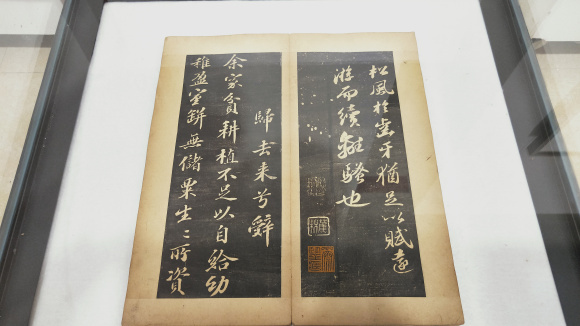 松風於齒牙猶足以賦遠
游而續離騷也
歸去来兮辭
余家貧耕植不足以自給幼
稚盈室缾無儲粟生〻所資